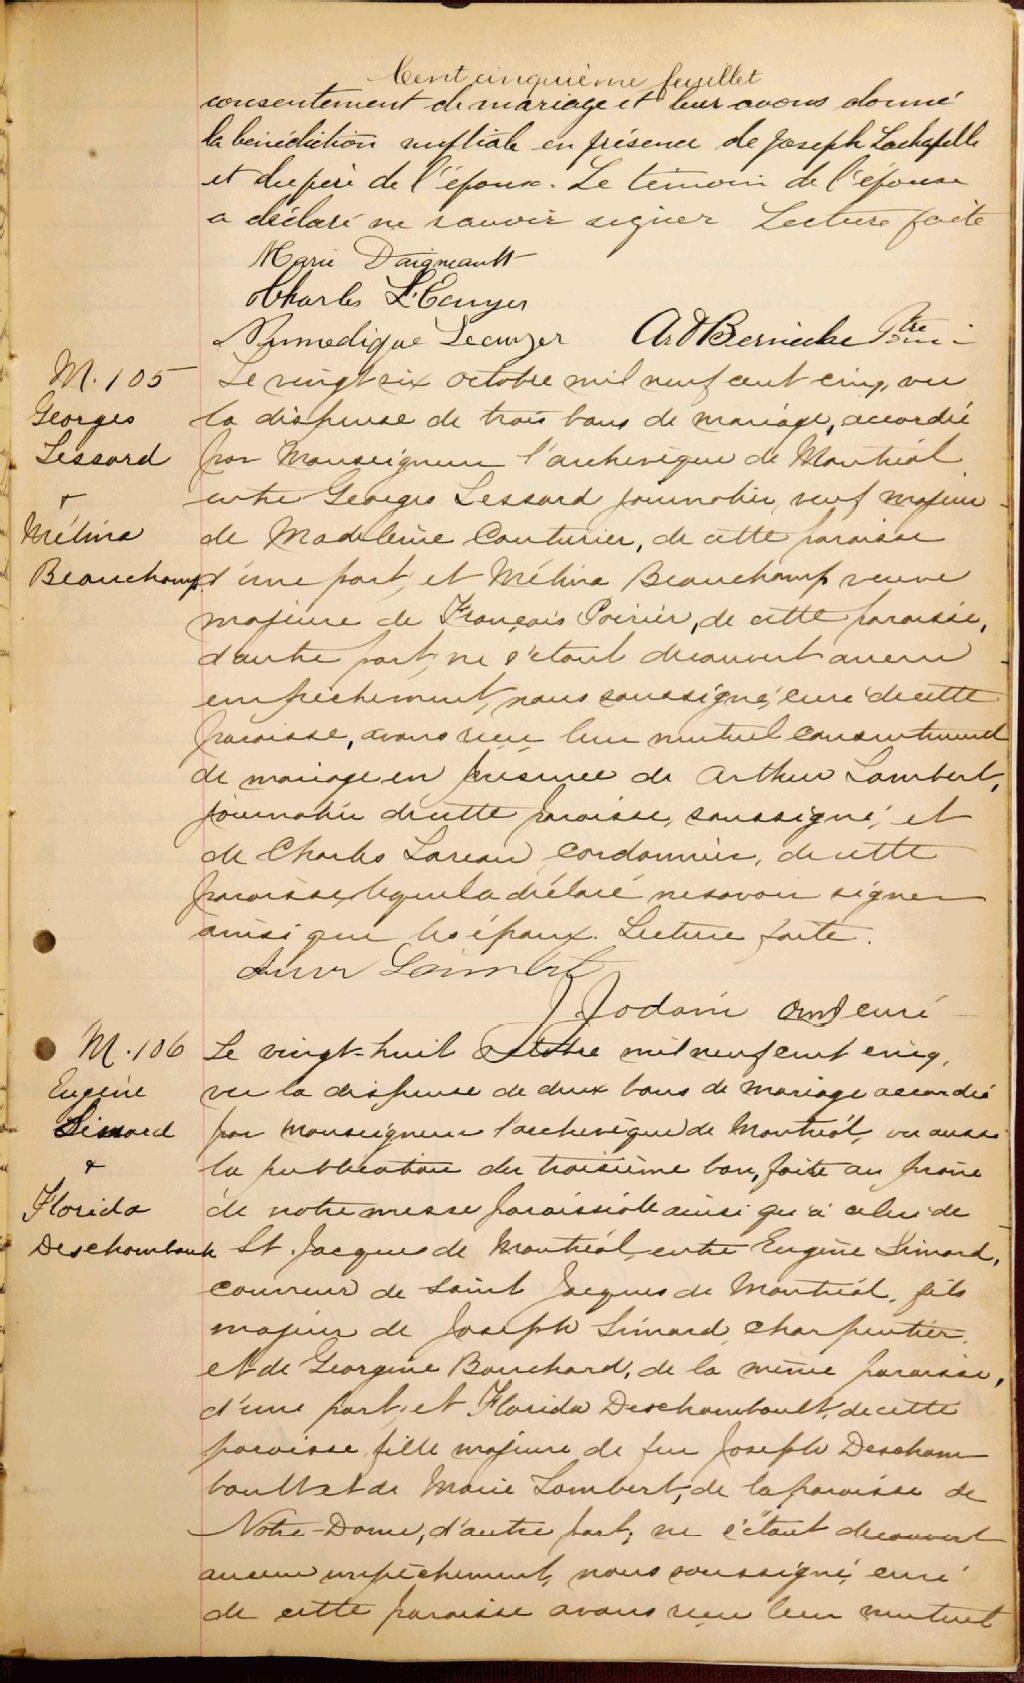 Cent cinquième feuillet
consentement de mariage et leur avons donné
la bénédiction nuptiale en présence de Joseph Lachapelle
et du père de l'époux. Le témoin de l'épouse
a déclaré ne savoir signer Lecture faite
Marie Daigneault
Charles L'Ecuyer
Lecuyer Ptre
M. 105
Georges
Lessard
+
Mélina
Beauchamp
Le vingt six octobre mil neuf cent cinq, vu
la dispense de trois bans de mariage, accordée
par Monseigneur l'archevêque de Montréal
entre Georges Lessard journalier, veuf majeur
de Madeleine Couturier, de cette paroisse
d'une part, et Mélina Beauchamp veuve
majeure de François Poirier, de cette paroisse,
d'autre part, ne s'étant découvert aucun
empêchement, nous soussigné, curé de cette
paroisse, avons reçu leur mutuel consentement
de mariage en présence de Arthur Lambert,
journalier de cette paroisse, soussigné, et
de Charles Lareau, cordonnier, de cette
paroisse, lequel a déclaré ne savoir signer
ainsi que les époux. Lecture faite.
Lambert
J. Jodoin curé
M. 106
Eugène
Simard
+
Florida
Deschambault
Le vingt-huit octobre mil neuf cent cinq,
vu la dispense de deux bans de mariage accordée
par Monseigneur l'archevêque de Montréal, vu aussi
la publication du troisième ban, faite au prône
de notre messe paroissiale ainsi qu'à celui de
St. Jacques de Montréal, entre Eugène Simard,
couvreur de Saint Jacques de Montréal, fils
majeur de Joseph Simard, charpentier,
et de Georgine Bouchard, de la même paroisse,
d'une part, et Florida Deschambault, de cette
paroisse, fille majeure de feu Joseph Descham
bault et de Marie Lambert, de la paroisse de
Notre-Dame, d'autre part; ne s'étant découvert
aucun empêchement, nous soussigné, curé
de cette paroisse avons reçu leur mutuel